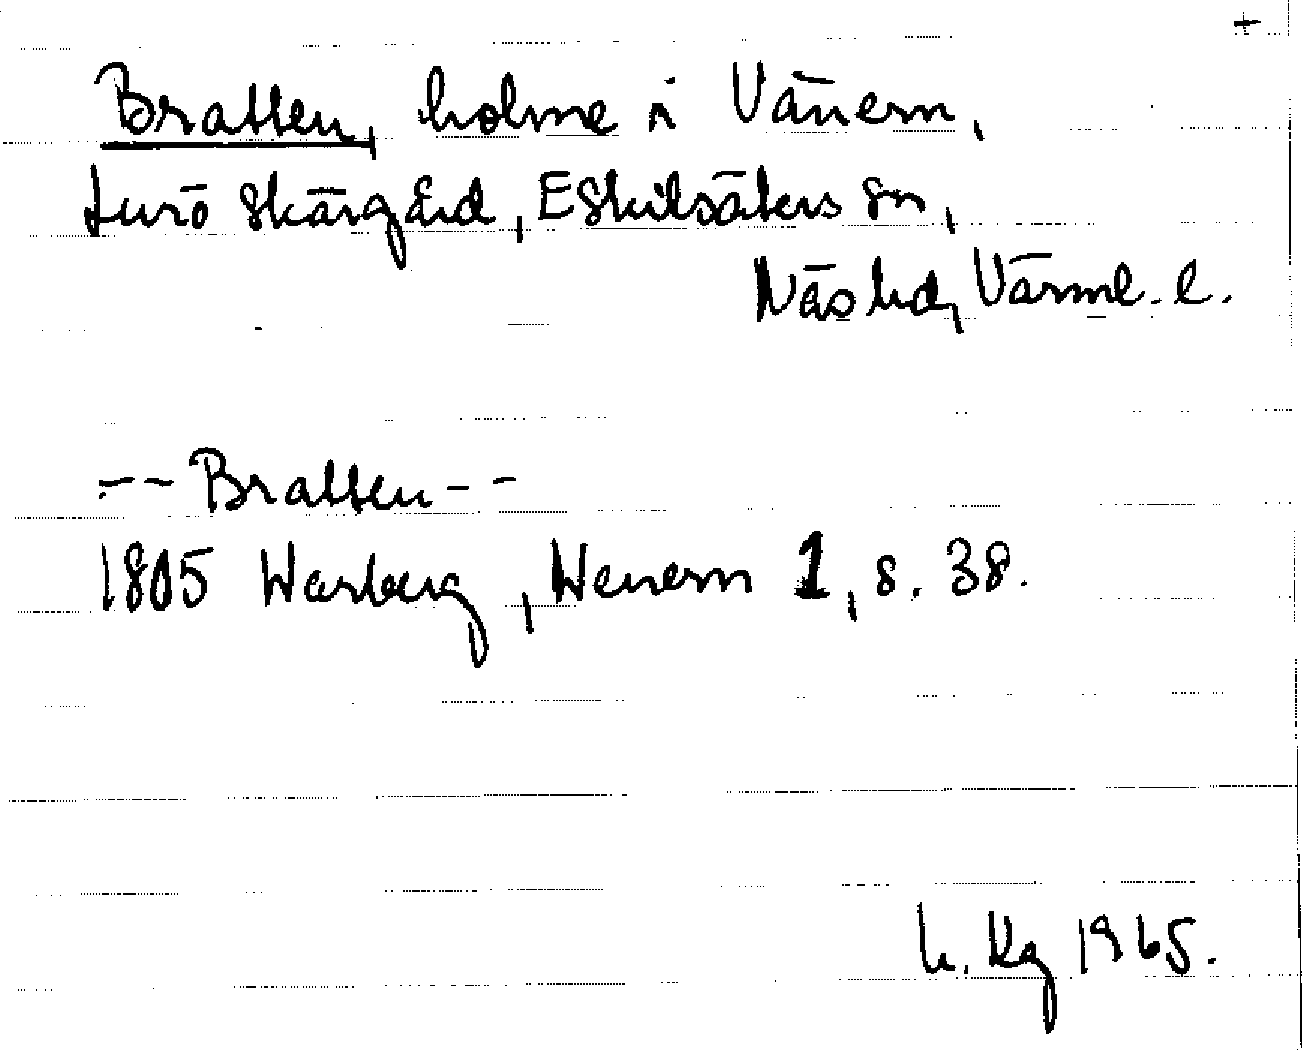 +
Bratten, holme i Vänern,
Lurö skärgård, Eskilsäters sn,
Näs hd, Värml. l.
-- Bratten --
1805 Warberg, Wenern 1, s. 38.
1965.